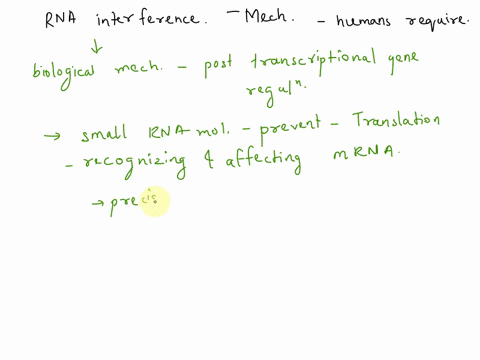 RNA interference. - Mech. - humans require.
↓
biological mech. - post transcriptional gene
regulⁿ.
→ small RNA mol. - prevent - Translation
- recognizing & affecting mRNA.
→ precis